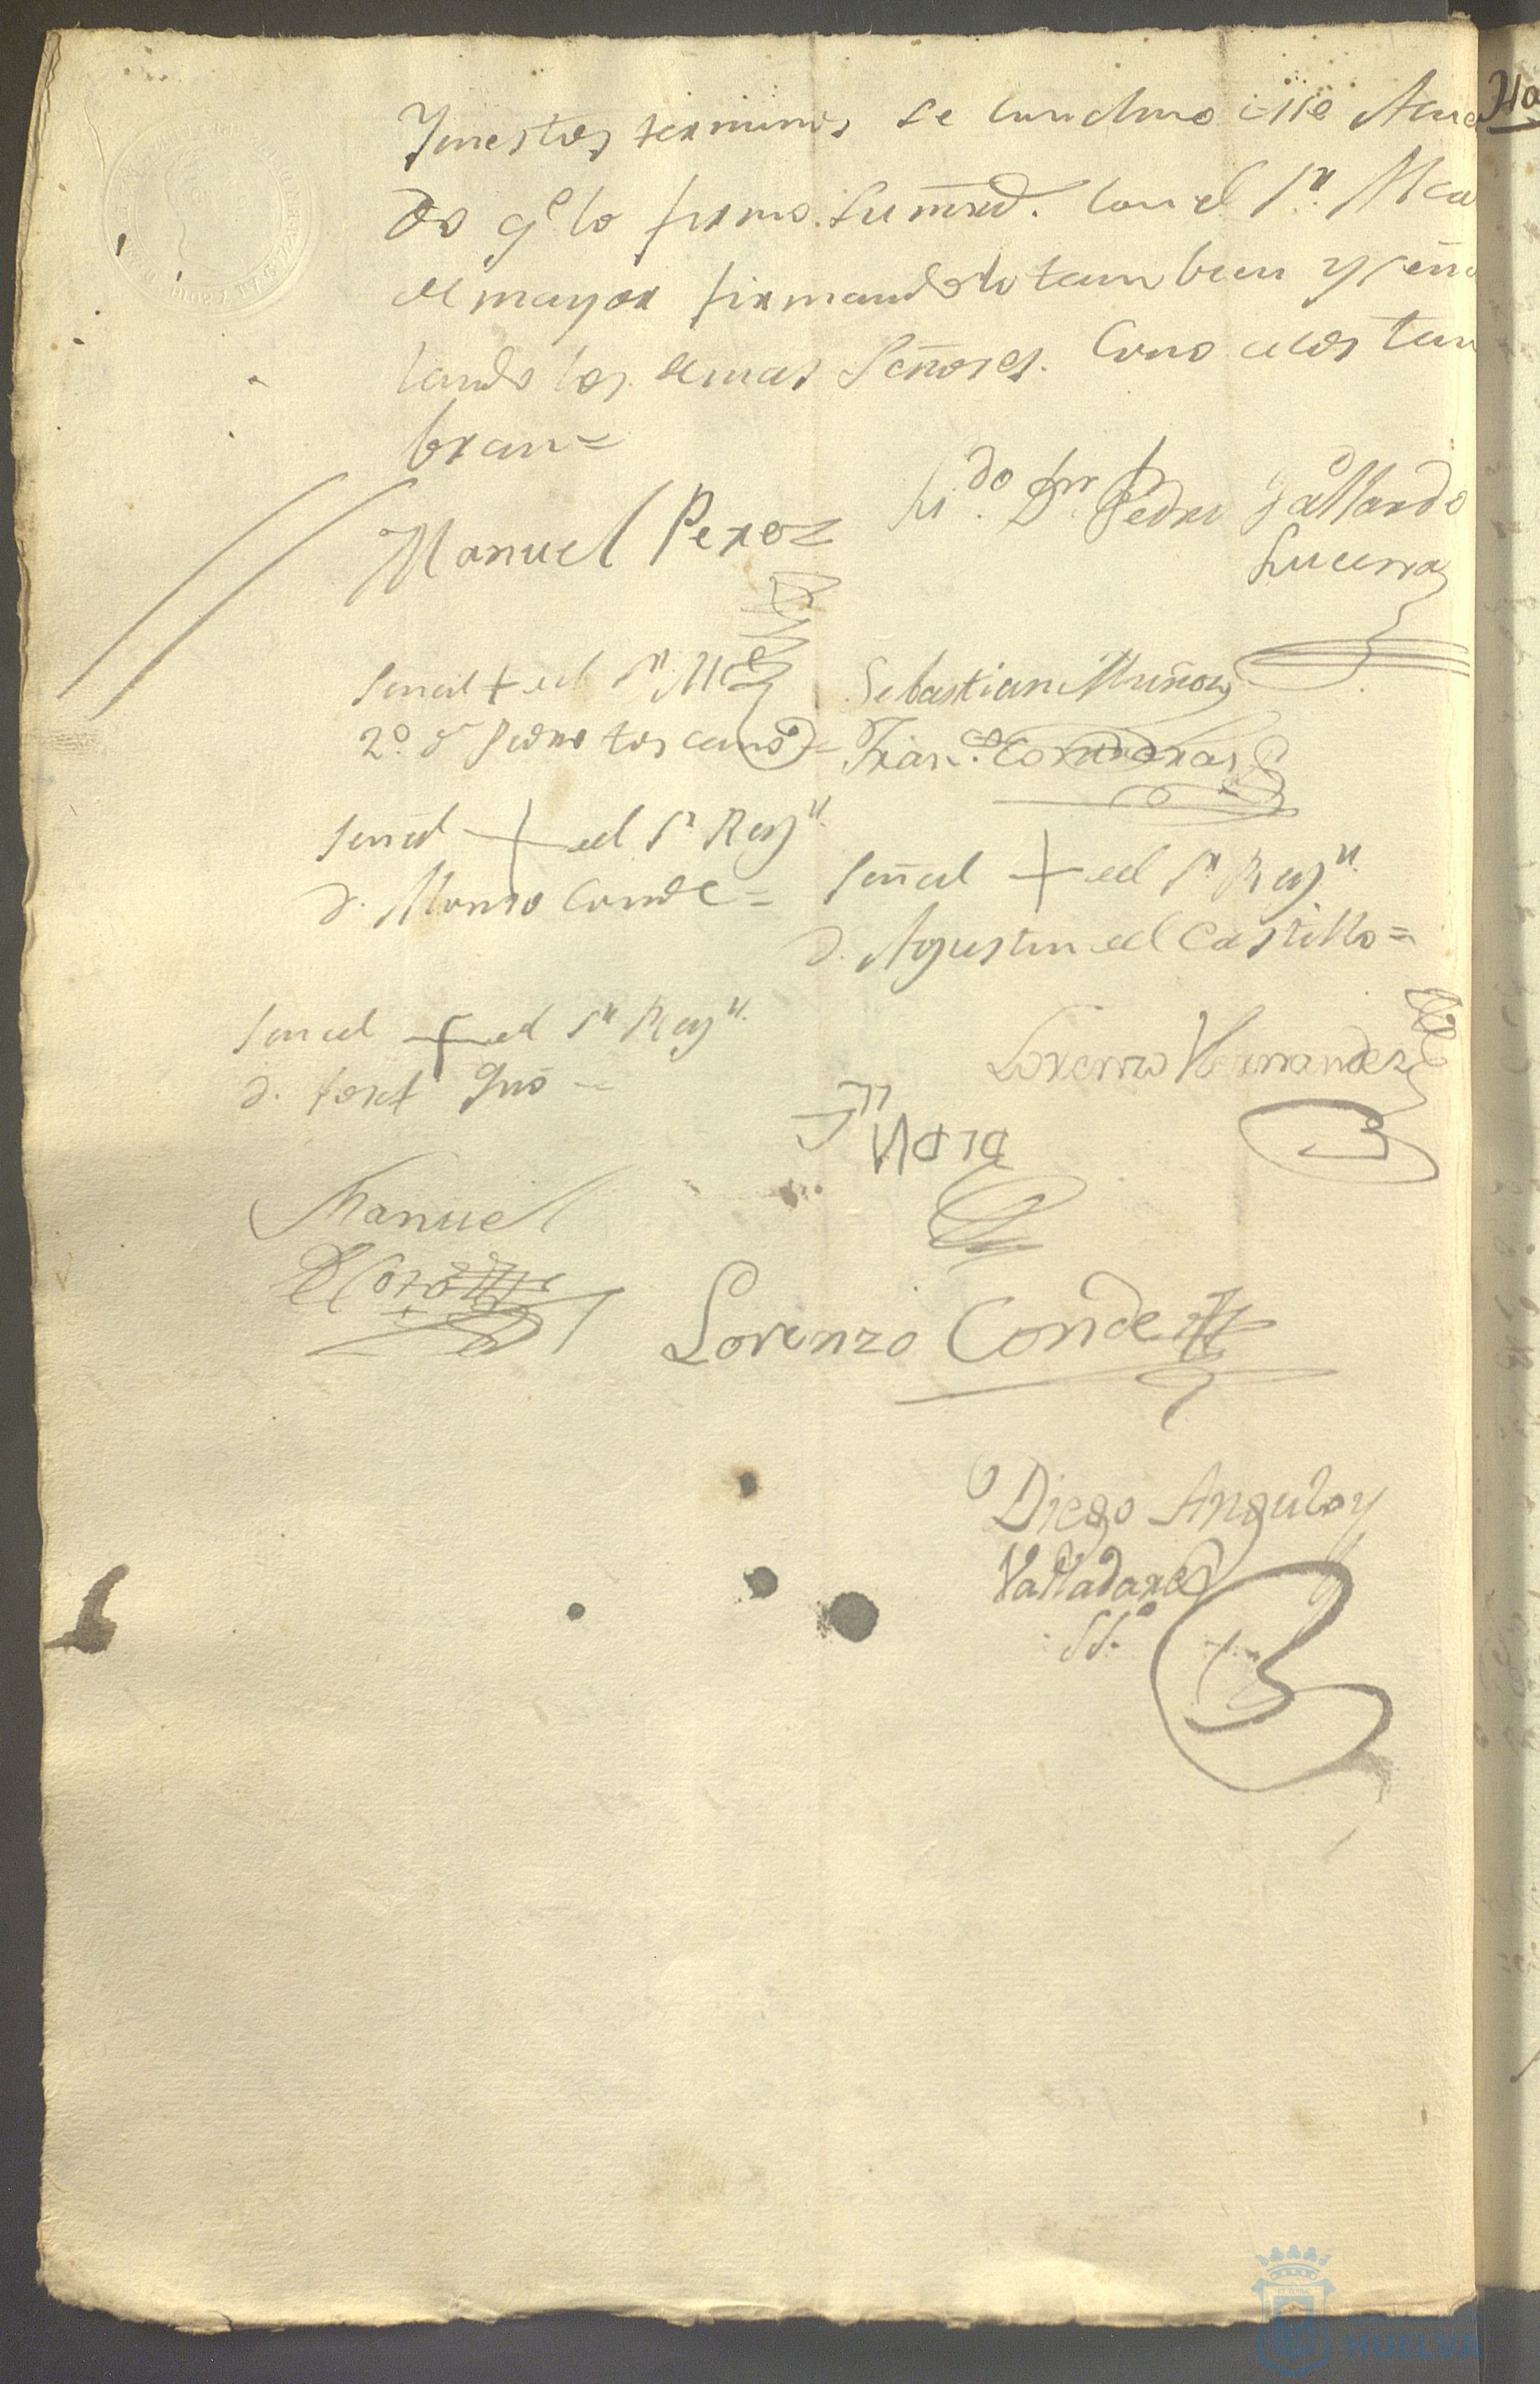 Yenestos terminos se concluio este Acue
do qe lo firmo su mrd. con el Sr. Alca
de mayor firmandolo tambien y señ
lando los demas Señores. Como acostun
bran =
Manuel Perez
Lido. Dn. Pedro Gallardo
Lucena
Señal + del Sr. Alce
2º. Dn Pedro toscano =
Sebastian Muñoz
Franco. Contreras
Señal + del Sr Regr.
D. Alonso Conde =
Señal + del Sr. Regr.
D. Agustin del Castillo =
Señal + del Sr Regr.
D. Josef
Lorenzo Hernandez
Manuel
Lorenzo Conde
Diego Angulo y
Valladares
SSº.
HUELVA